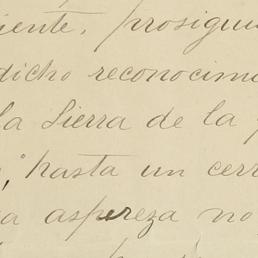 iente, prosiguie
dicho reconocimi
la Sierra de la
," hasta un cerr
a aspereza no